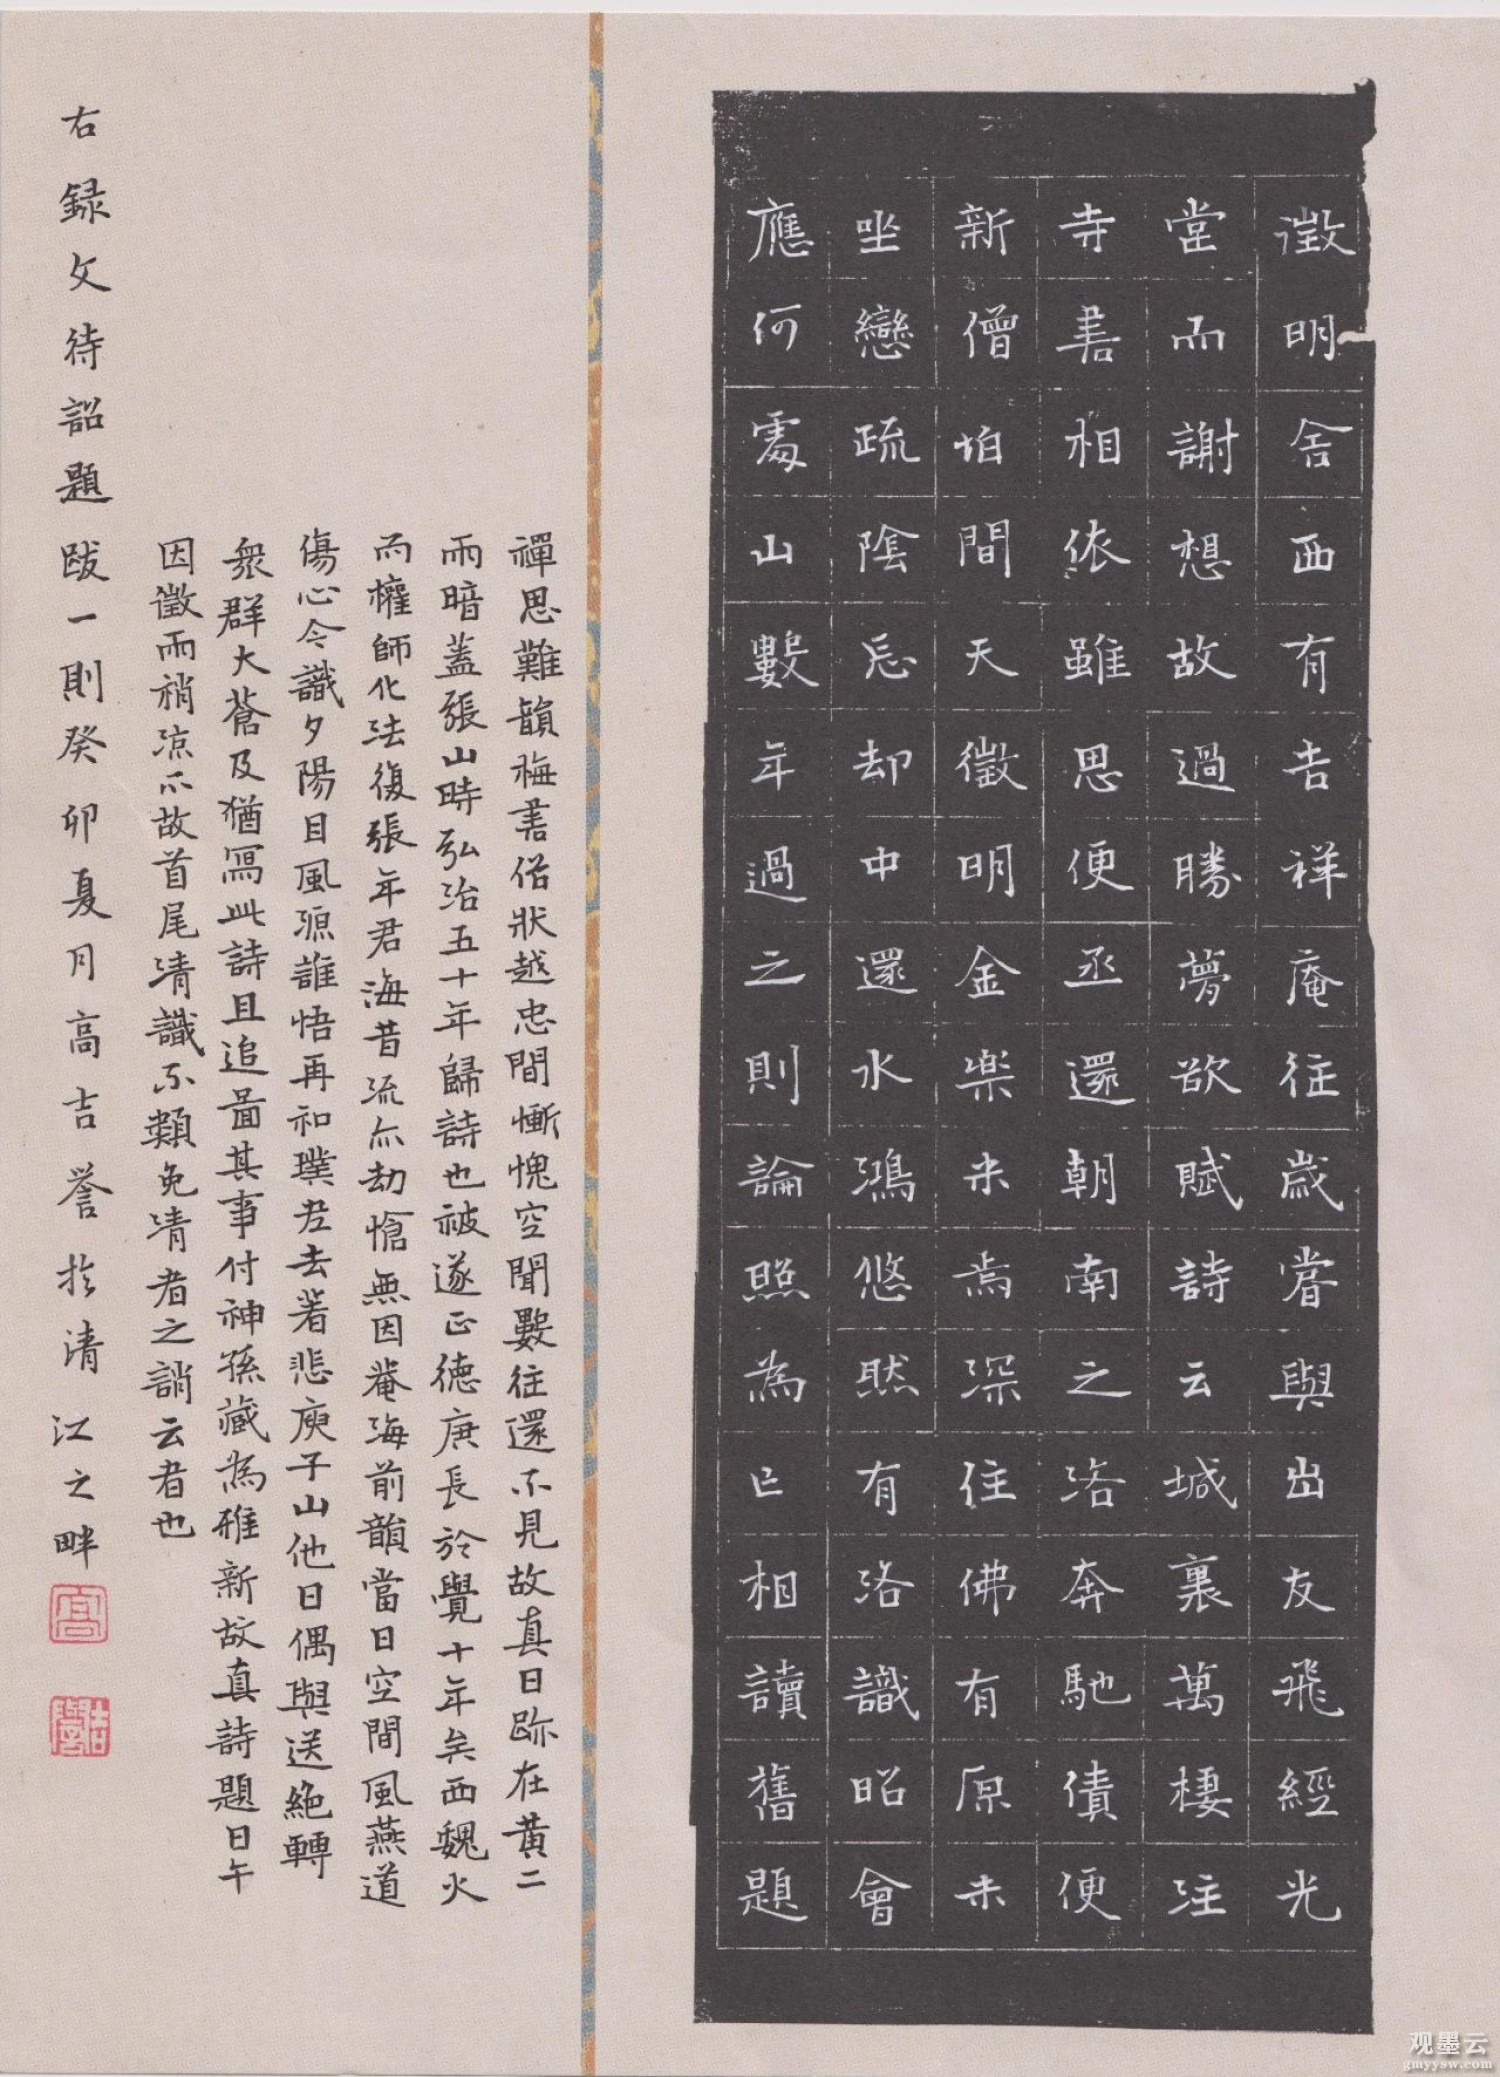 澂明舍西有吉祥庵往歲嘗與出友飛經光
堂而謝想故過勝夢欲賦詩云城裏萬棲注
寺書相依雖思便丞還朝南之洛奔馳債便
新僧怕間天徵明金樂未焉深住佛有原未
坐戀疏陰忘却中水還鴻悠然有洛識昭會
應何處山數年過之則論照為已相讀舊題
禪思難韻梅書俗狀越忠間慚愧空聞數往還不見故真日跡在黃二
雨暗蓋張山時弘治五十年歸詩也被遂正德庚長於覺十年矣西魏火
而權師化法復張年君海昔流亦劫愴無因菴海前韻當日空間風燕道
傷心今識夕陽目風源誰悟再和璞君去著悲庾子山他日偶與送絕轉
衆群大蒼及猶寫此詩且追啚其事付神孫藏為雅新故真詩題日午
因徵而稍涼爾故首尾清識不類免清者之誚云者也
右録文待詔題跋一則癸卯夏月高吉誉於清江之畔
高
吉譽
观墨云
gmyysw.com